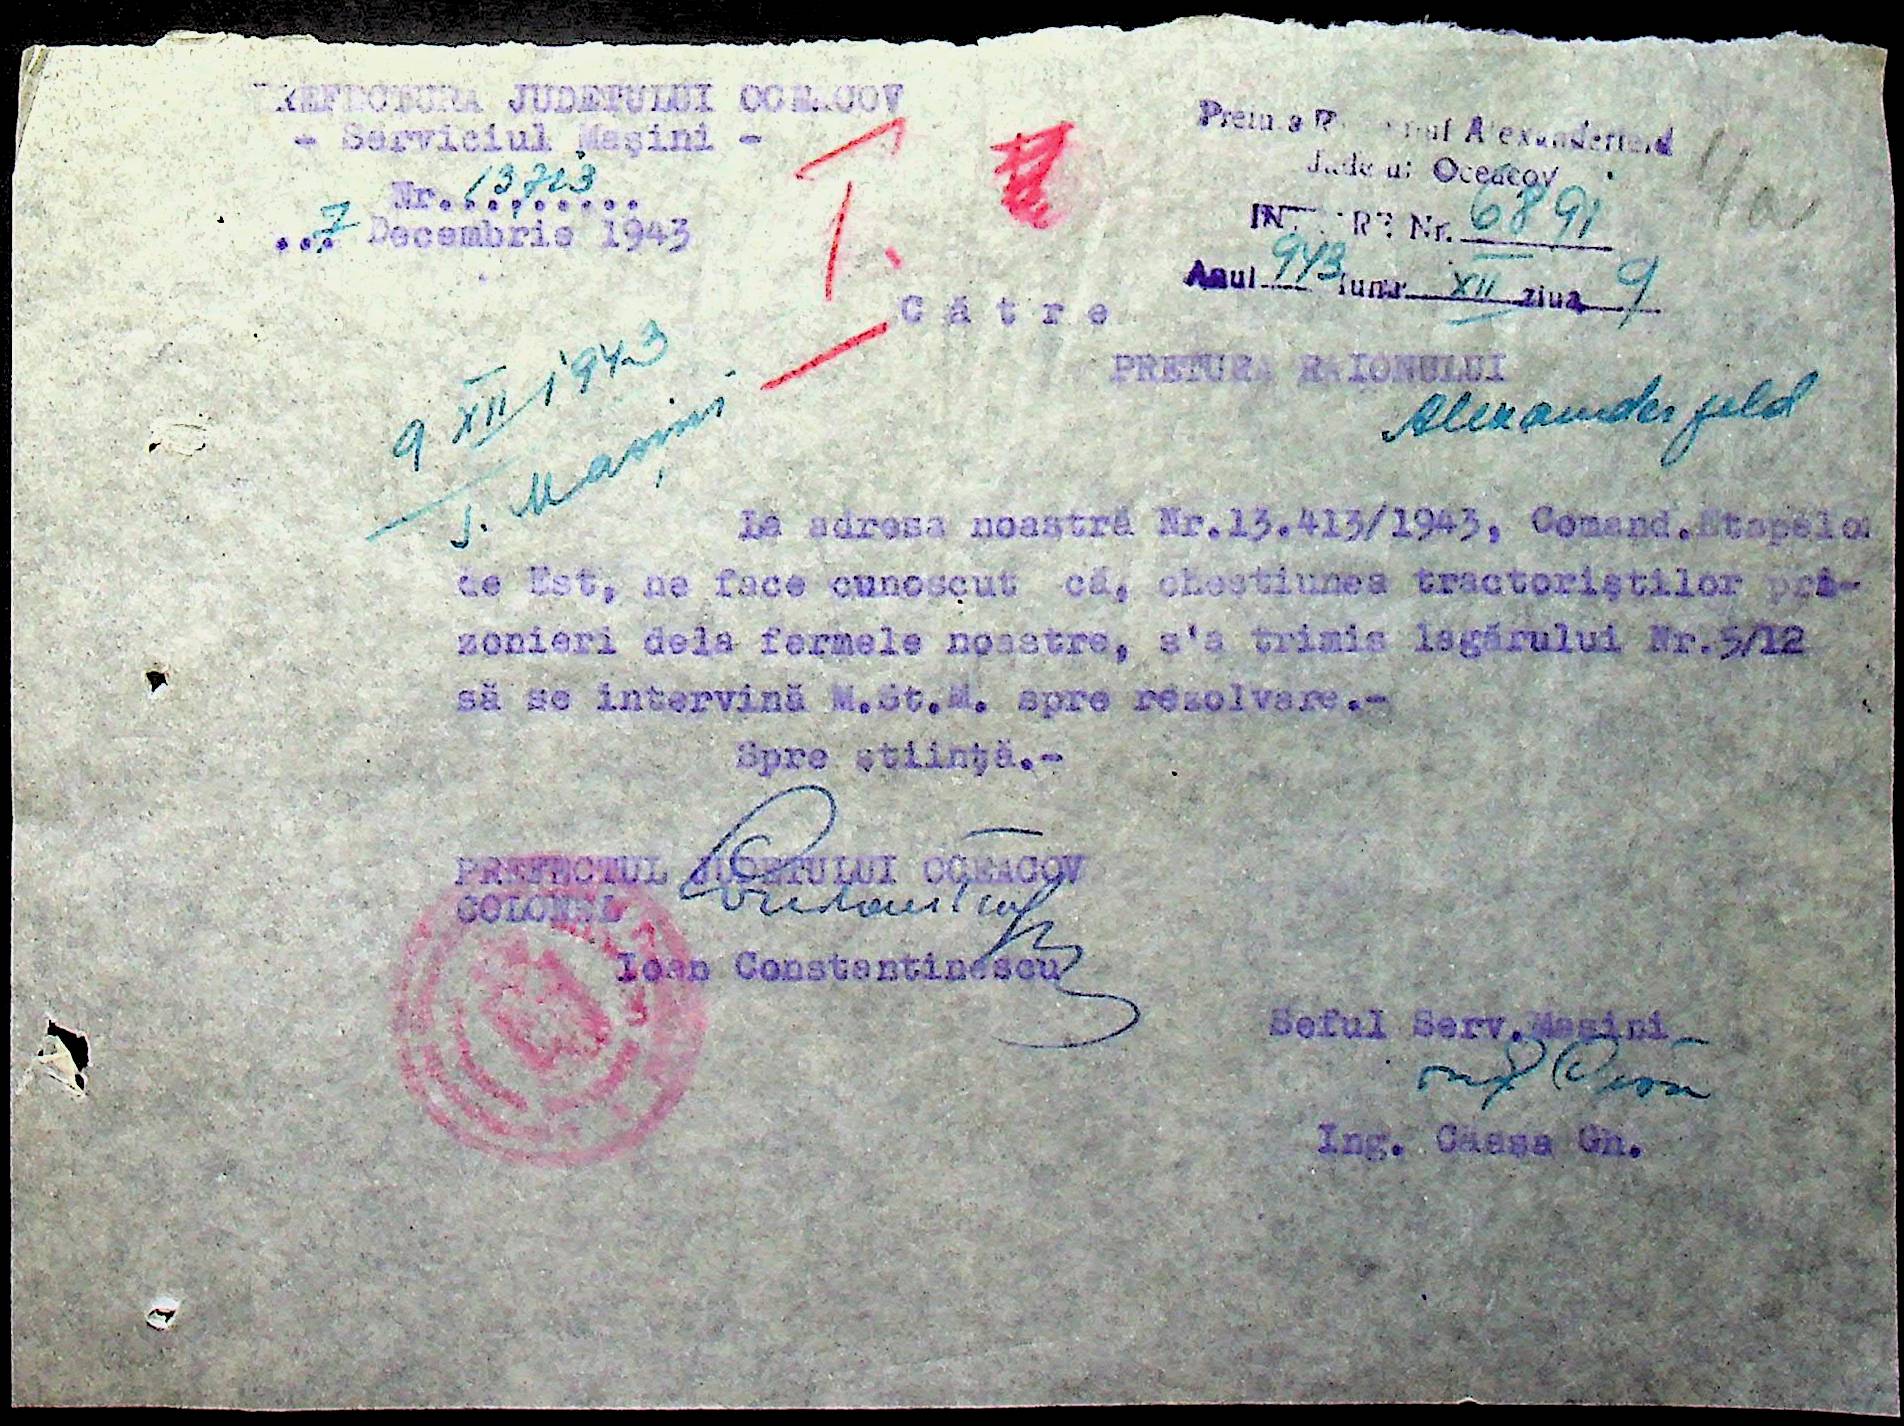 PREFECTURA JUDETULUI OCEACOV
- Serviciul Maşini -
Nr. 13713
7 Decembrie 1943
Pretura Raionul Alexanderfeld
Judetul Oceacov
INTRARE Nr. 6891
Anul 943 luna XII ziua 9
T.
Către
PRETURA RAIONULUI
Alexanderfeld
9 XII 1943
S. Maşini
La adresa noastră Nr.13.413/1943, Comand.Etapelor
de Est, ne face cunoscut că, chestiunea tractoriştilor pri-
zonieri dela fermele noastre, s'a trimis lagărului Nr.5/12
să se intervină M.St.M. spre rezolvare.-
Spre ştiinţă.-
PREFECTUL JUDETULUI OCEACOV
COLONEL
Ioan Constantinescu
Seful Serv.Maşini
Ing. Căasa Gh.